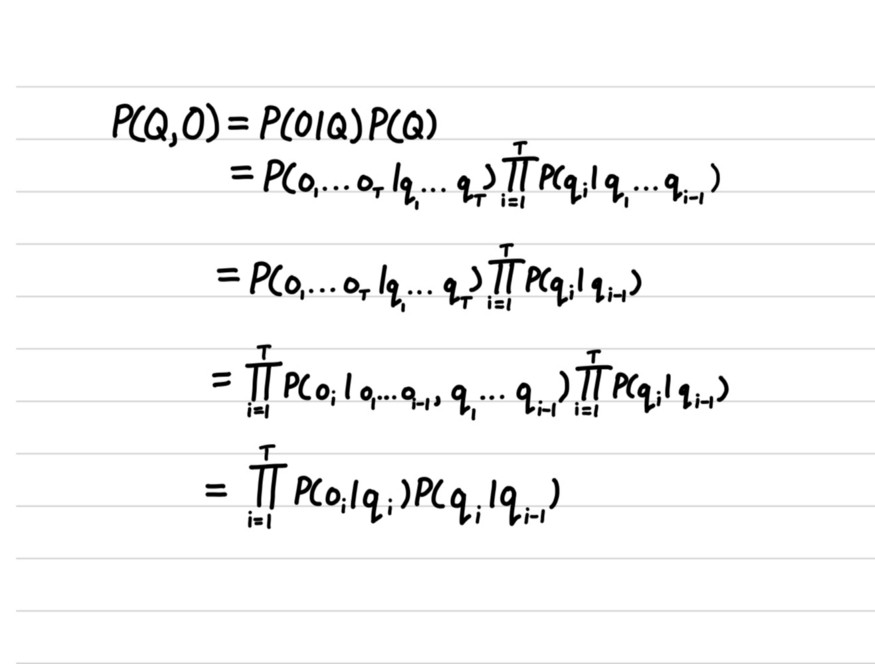 P(Q,O) = P(O|Q)P(Q)
= P(o₁...o_T|q₁...q_T) ∏_{i=1}^{T} P(q_i|q₁...q_{i-1})
= P(o₁...o_T|q₁...q_T) ∏_{i=1}^{T} P(q_i|q_{i-1})
= ∏_{i=1}^{T} P(o_i|o₁...o_{i-1}, q₁...q_{i-1}) ∏_{i=1}^{T} P(q_i|q_{i-1})
= ∏_{i=1}^{T} P(o_i|q_i)P(q_i|q_{i-1})